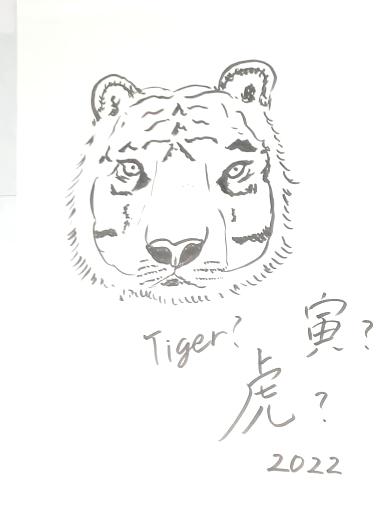 Tiger?
寅?
虎?
2022